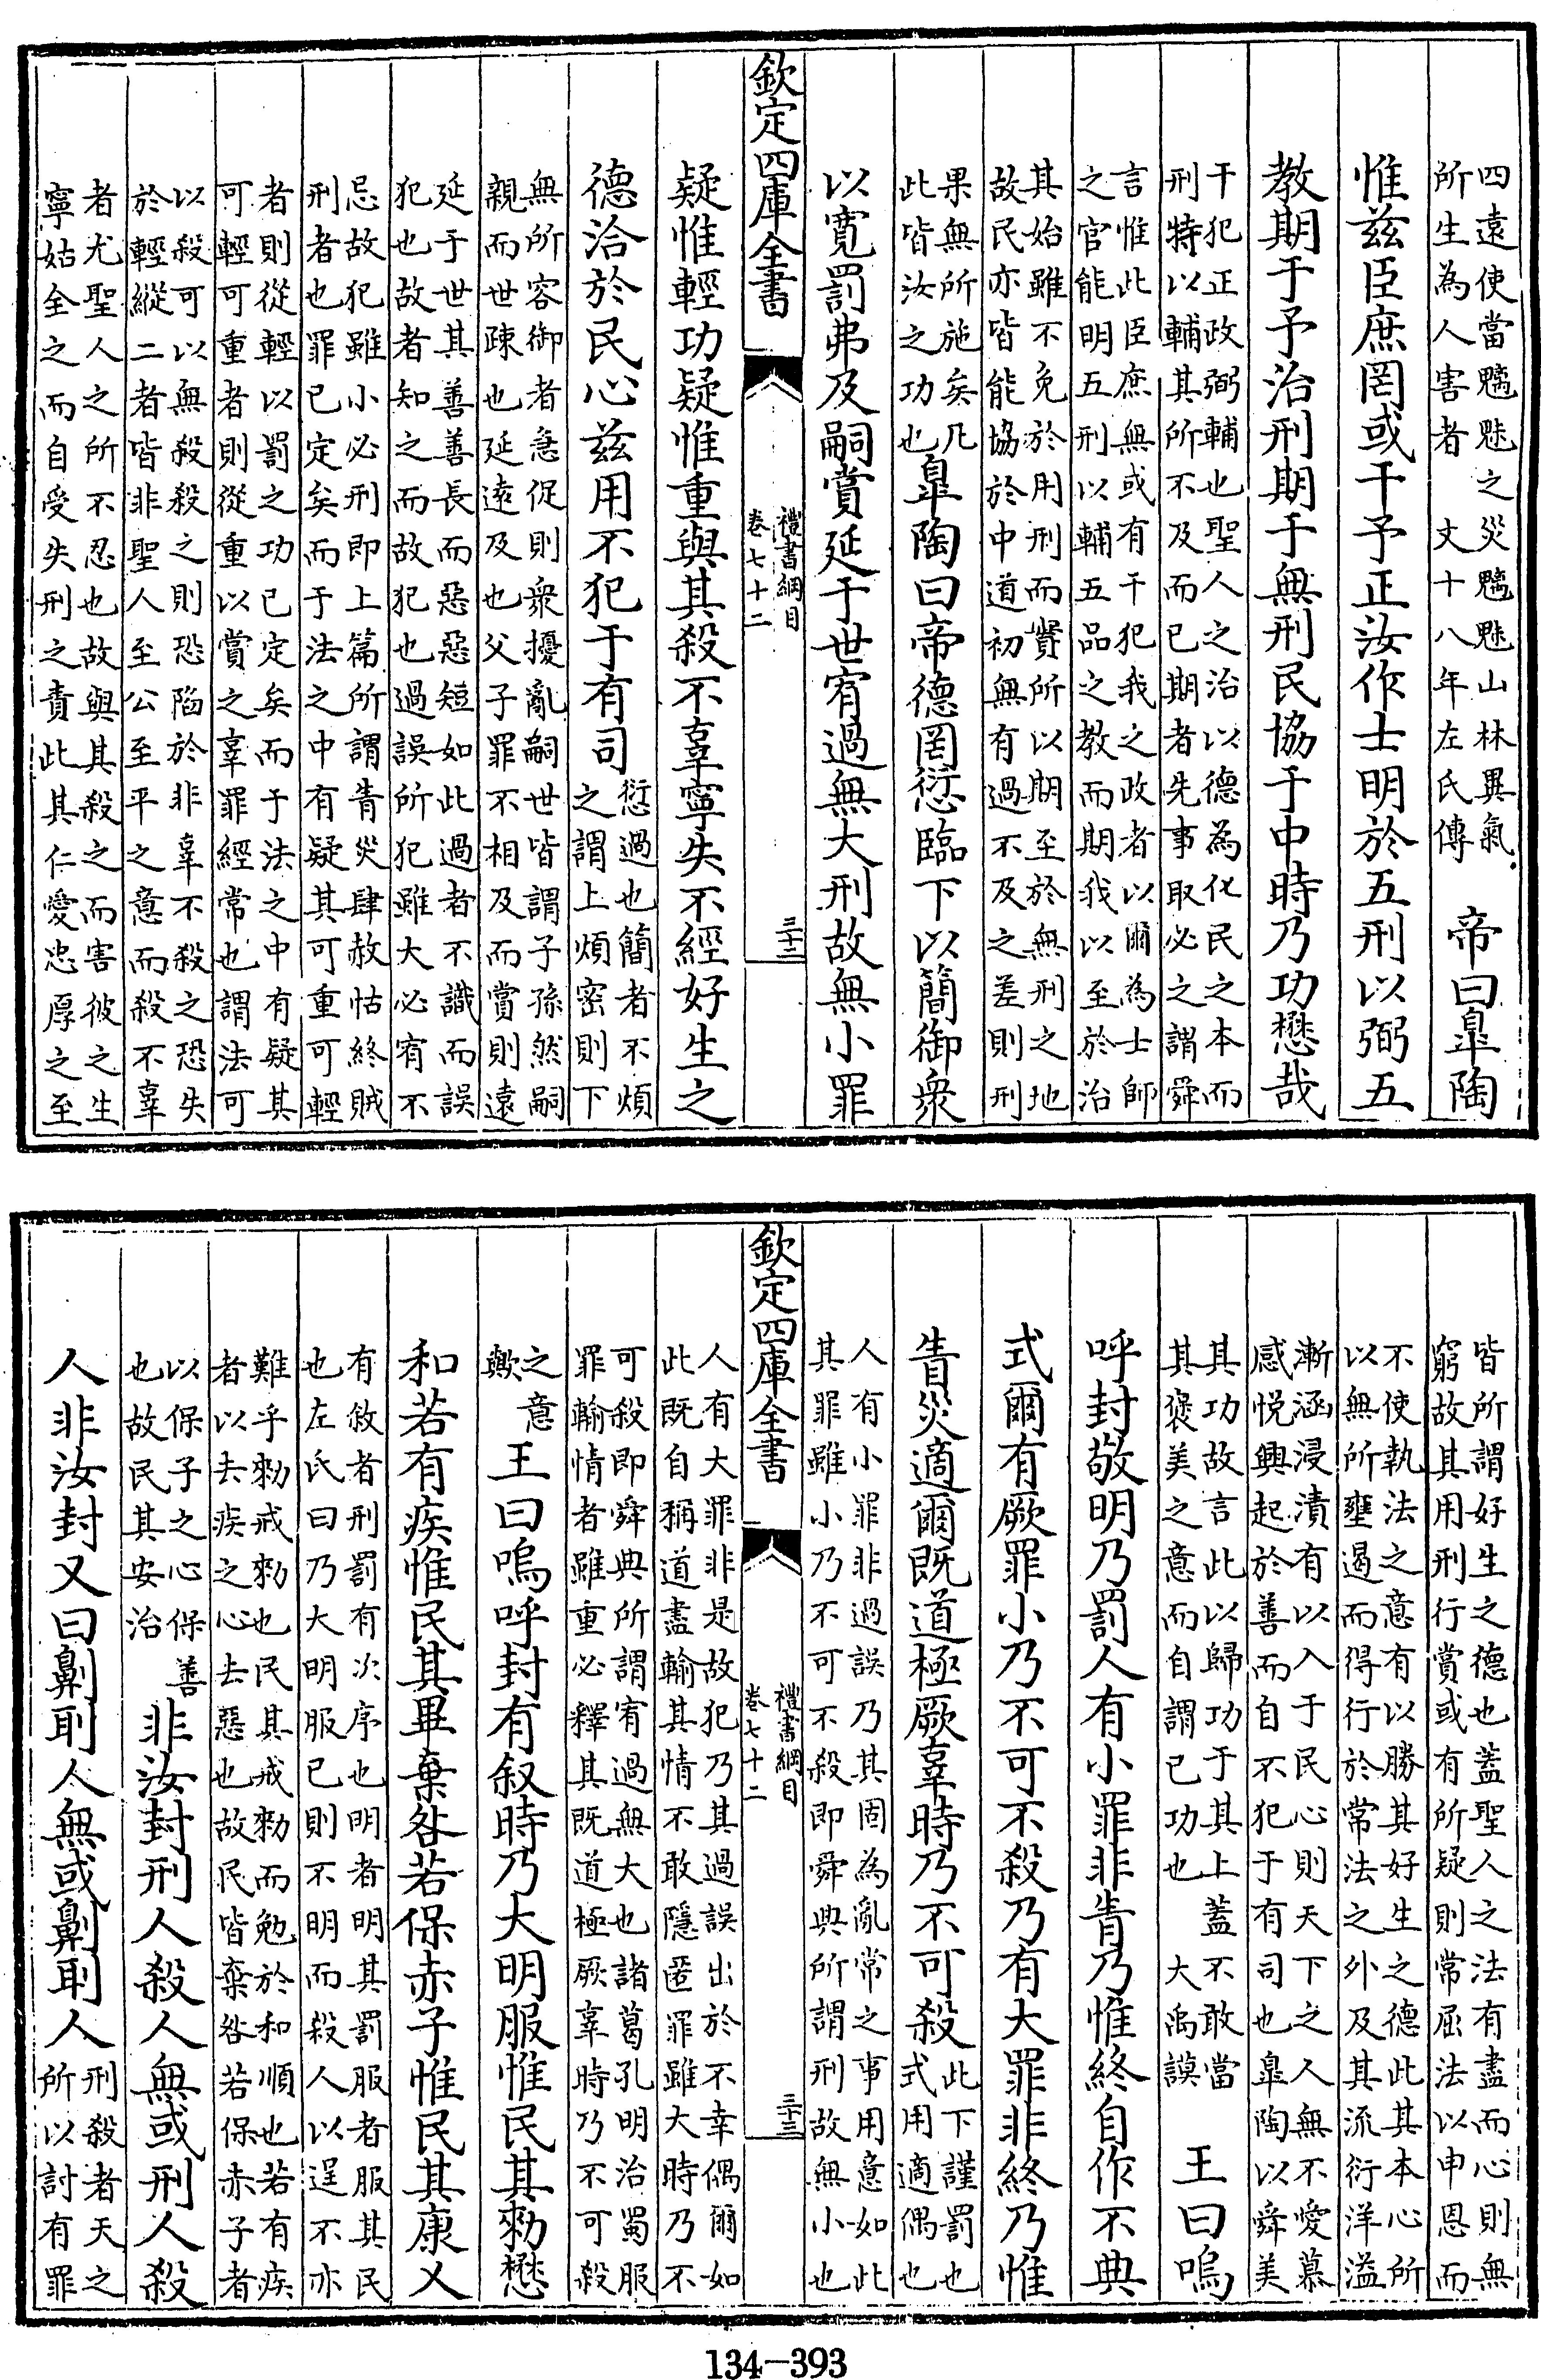 四遠使當魑魅之災魑魅山林異氣
所生為人害者　文十八年左氏傳
帝曰皐陶
惟兹臣庶罔或干予正汝作士明於五刑以弼五
教期于予治刑期于無刑民協于中時乃功懋哉
干犯正政弼輔也聖人之治以德為化民之本而
刑特以輔其所不及而已期者先事取必之謂舜
言惟此臣庶無或有干犯我之政者以爾為士師
之官能明五刑以輔五品之教而期我以至於治
其始雖不免於用刑而實所以期至於無刑之地
故民亦皆能協於中道初無有過不及之差則刑
果無所施矣凡
此皆汝之功也
皐陶曰帝德罔愆臨下以簡御衆
以寛罰弗及嗣賞延于世宥過無大刑故無小罪
欽定四庫全書
禮書綱目
卷七十二
三十二
疑惟輕功疑惟重與其殺不辜寧失不經好生之
德洽於民心兹用不犯于有司
愆過也簡者不煩
之謂上煩密則下
無所容御者急促則衆擾亂嗣世皆謂子孫然嗣
親而世疎也延遠及也父子罪不相及而賞則遠
延于世其善善長而惡惡短如此過者不識而誤
犯也故者知之而故犯也過誤所犯雖大必宥不
忌故犯雖小必刑即上篇所謂眚災肆赦怙終賊
刑者也罪已定矣而于法之中有疑其可重可輕
者則從輕以罰之功已定矣而于法之中有疑其
可輕可重者則從重以賞之辜罪經常也謂法可
以殺可以無殺殺之則恐陷於非辜不殺之恐失
於輕縱二者皆非聖人至公至平之意而殺不辜
者尤聖人之所不忍也故與其殺之而害彼之生
寧姑全之而自受失刑之責此其仁愛忠厚之至
皆所謂好生之德也蓋聖人之法有盡而心則無
窮故其用刑行賞或有所疑則常屈法以申恩而
不使執法之意有以勝其好生之德此其本心所
以無所壅遏而得行於常法之外及其流衍洋溢
漸涵浸漬有以入于民心則天下之人無不愛慕
感悅興起於善而自不犯于有司也皐陶以舜美
其功故言此以歸功于其上蓋不敢當
其褒美之意而自謂已功也　大禹謨
王曰嗚
呼封敬明乃罰人有小罪非眚乃惟終自作不典
式爾有厥罪小乃不可不殺乃有大罪非終乃惟
眚災適爾既道極厥辜時乃不可殺
此下謹罰也
式用適偶也
人有小罪非過誤乃其固為亂常之事用意如此
其罪雖小乃不可不殺即舜典所謂刑故無小也
欽定四庫全書
禮書綱目
卷七十二
三十三
人有大罪非是故犯乃其過誤出於不幸偶爾如
此既自稱道盡輸其情不敢隱匿罪雖大時乃不
可殺即舜典所謂宥過無大也諸葛孔明治蜀服
罪輸情者雖重必釋其既道極厥辜時乃不可殺
之意
歟
王曰嗚呼封有叙時乃大明服惟民其勑懋
和若有疾惟民其畢棄咎若保赤子惟民其康乂
有敘者刑罰有次序也明者明其罰服者服其民
也左氏曰乃大明服已則不明而殺人以逞不亦
難乎勑戒勑也民其戒勑而勉於和順也若有疾
者以去疾之心去惡也故民皆棄咎若保赤子者
以保子之心保善
也故民其安治
非汝封刑人殺人無或刑人殺
人非汝封又曰劓刵人無或劓刵人
刑殺者天之
所以討有罪
134-393